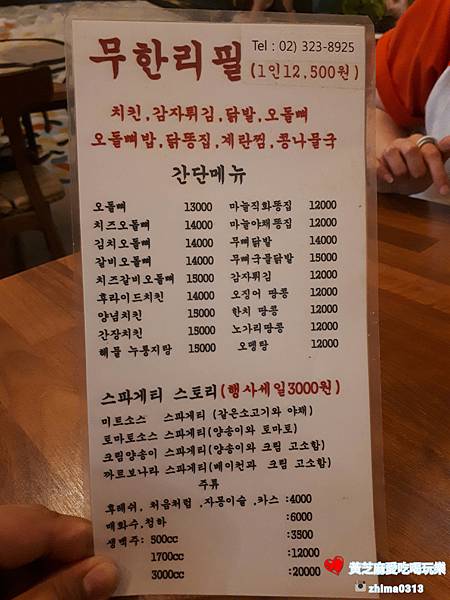 무한리필 Tel : 02) 323-8925
(1인12,500원)
치킨,감자튀김,닭발,오돌뼈
오돌뼈밥,닭똥집,계란찜,콩나물국
간단메뉴
오돌뼈 13000 마늘직화똥집 12000
치즈오돌뼈 14000 마늘야채똥집 12000
김치오돌뼈 14000 무뼈닭발 14000
갈비오돌뼈 14000 무뼈국물닭발 15000
치즈갈비오돌뼈 15000 감자튀김 12000
후라이드치킨 14000 오징어 땅콩 12000
양념치킨 15000 한치 땅콩 12000
간장치킨 15000 노가리땅콩 12000
해물 누룽지탕 15000 오뎅탕 12000
스파게티 스토리(행사세일3000원)
미트소스 스파게티 (갈은소고기와 야채)
토마토소스 스파게티(양송이와 토마토)
크림양송이 스파게티(양송이와 크림 고소함)
까르보나라 스파게티(베이컨과 크림 고소함)
주류
후레쉬, 처음처럼 ,자몽이슬 ,카스 :4000
매화수,청하 :6000
생맥주: 500cc :3500
1700cc :12000
3000cc :20000
黃芝麻愛吃喝玩樂
zhima0313